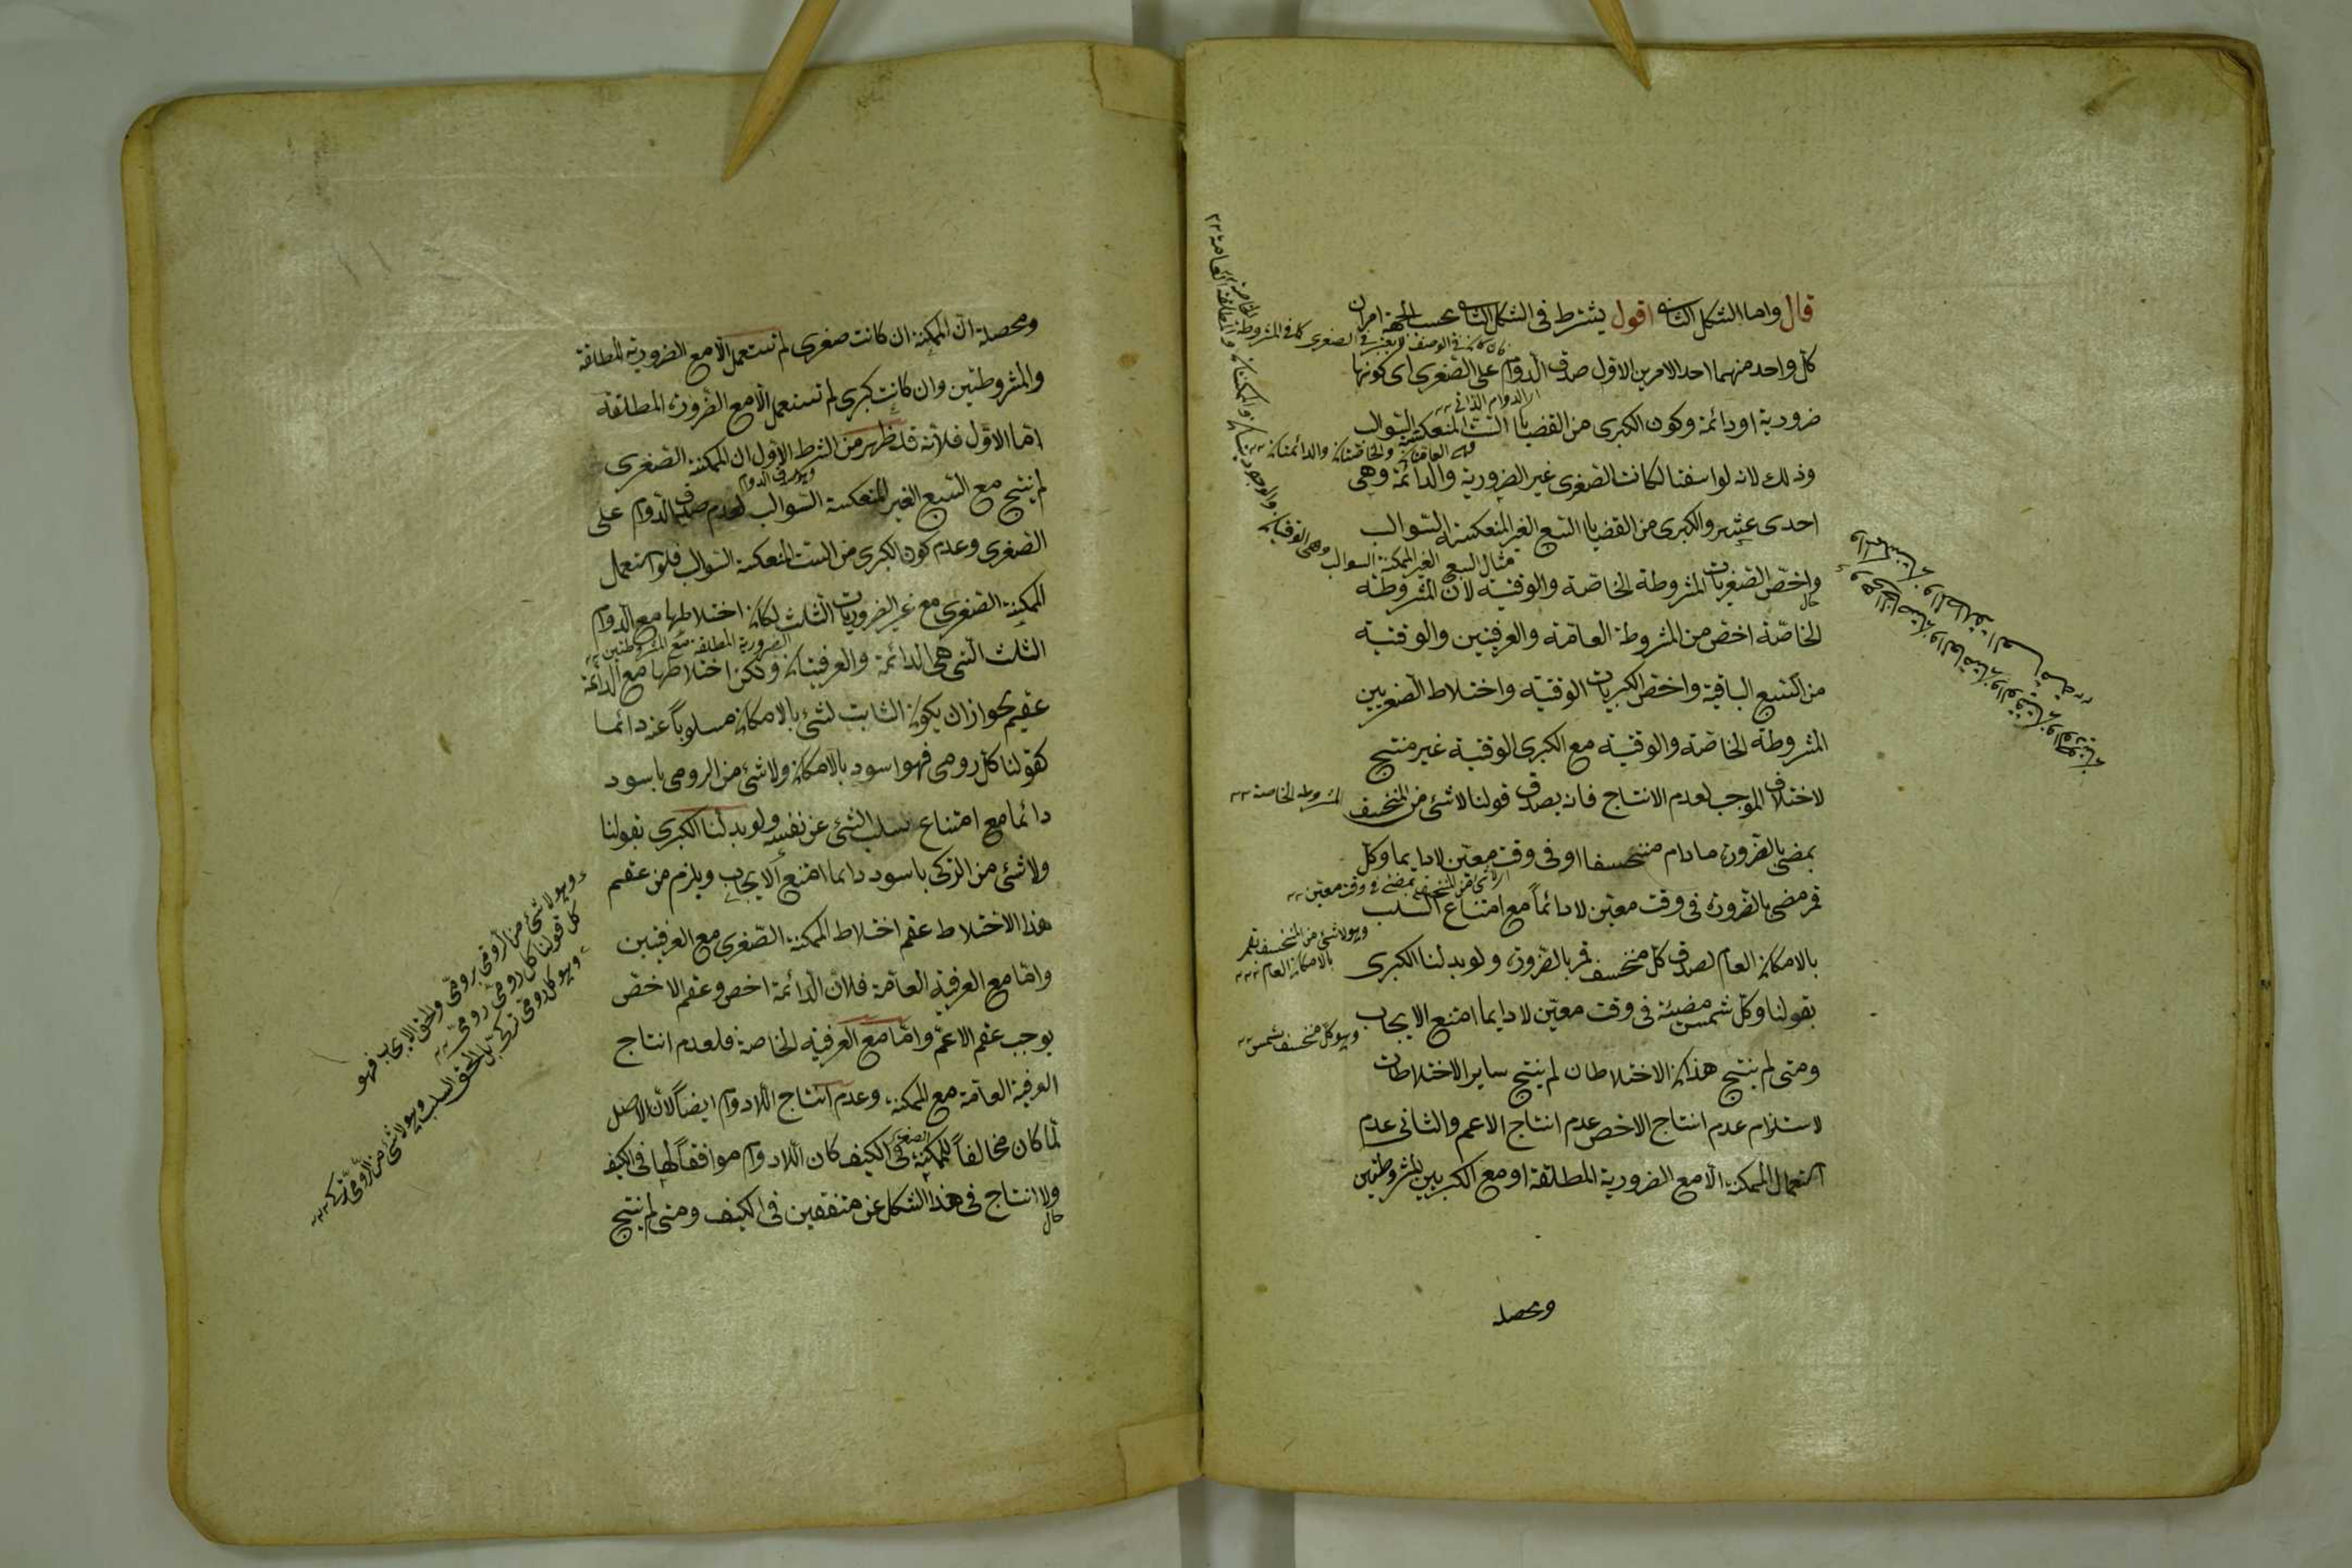 قال واما الشكل الثانى اقول يشترط فى الشكل الثانى بحسب الجهة امران
كل واحد منهما احد الامرين الاول صدق الدوام على الصغرى اى كونها
ضرورية او دائمة وكون الكبرى من القضايا الست المنعكسة السوالب
وذلك لانه لو انتفيا لكانت الصغرى غير الضرورية والدائمة وهى
احدى عشر والكبرى من القضايا السبع الغير المنعكسة السوالب
واخص الصغريات المشروطة الخاصة والوقتية لان المشروطة
الخاصة اخص من المشروطة العامة والعرفيتين والوقتية
من السبع الباقية واخص الكبريات الوقتية واختلاط الصغريين
المشروطة الخاصة والوقتية مع الكبرى الوقتية غير منتج
لاختلاف الموجب لعدم الانتاج فانه يصدق قولنا لا شئ من المنخسف
بمضئ بالضرورة ما دام منخسفا او فى وقت معين لا دايما وكل
قمر مضئ بالضرورة فى وقت معين لا دائماً مع امتناع السلب
بالامكان العام لصدق كل منخسف قمر بالضرورة ولو بدلنا الكبرى
بقولنا وكل شمس مضيئة فى وقت معين لا دايما امتنع الايجاب
ومتى لم ينتج هذان الاختلاطان لم ينتج ساير الاختلاطات
لاستلزام عدم انتاج الاخص عدم انتاج الاعم والثانى عدم
استعمال الممكنة الا مع الضرورية المطلقة او مع الكبريين المشروطتين
ومحصله
اى الدوام الذاتى
وهى العامتان والخاصتان والدائمتان
مثال السبع الغير المنعكسة السوالب وهى الوقتيان والوجوديتان والممكنتان والمطلقة العامة
المشروطة الخاصة
اى لا شئ من المنخسف بمضئ فى وقت معين
وهو لا شئ من المنخسف بقمر
بالامكان العام
وهو كل منخسف شمس
ومحصله ان الممكنة ان كانت صغرى لم تستعمل الا مع الضرورية المطلقة
والمشروطتين وان كانت كبرى لم تستعمل الا مع الضرورة المطلقة
اما الاول فلأنه قد ظهر من الشرط الاول ان الممكنة الصغرى
لم ينتج مع السبع الغير المنعكسة السوالب لعدم صدق الدوام على
الصغرى وعدم كون الكبرى من الست المنعكسة السوالب فلو استعمل
الممكنة الصغرى مع غير الضروريات الثلث لكان اختلاطها مع الدوام
الضرورية المطلقة مع المشروطتين
الثلث التى هى الدائمة والعرفيتان ولكن اختلاطها مع الدائمة
عقيم لجواز ان يكون الثابت لشئ بالامكان مسلوباً عنه دائما
كقولنا كل رومى فهو اسود بالامكان ولا شئ من الرومى باسود
دائما مع امتناع سلب الشئ عن نفسه ولو بدلنا الكبرى بقولنا
ولا شئ من التركى باسود دايما امتنع الايجاب ويلزم من عقم
هذا الاختلاط عقم اختلاط الممكنة الصغرى مع العرفيتين
واما مع العرفية العامة فلان الدائمة اخص وعقم الاخص
يوجب عقم الاعم واما مع العرفية الخاصة فلعدم انتاج
العرفية العامة مع الممكنة وعدم انتاج اللادوام ايضاً لان الاصل
لما كان مخالفاً للممكنة الصغرى فى الكيف كان اللادوام موافقاً لها فى الكيف
ولا انتاج فى هذا الشكل عن متفقين فى الكيف ومتى لم ينتج
وهو لا شئ من الرومى برومى والحق الايجاب فهو
كل قولنا كل رومى رومى
وهو كل رومى تركى بل الحق السلب وهو لا شئ من الرومى بتركى